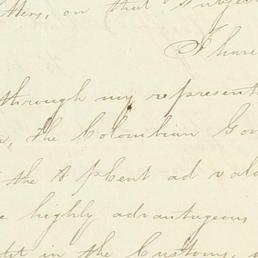 tters, on that subject
I have
through my represent
, the Colombian Gov
the 8 pCent ad valo
e highly advantageous
dit in the Customs,